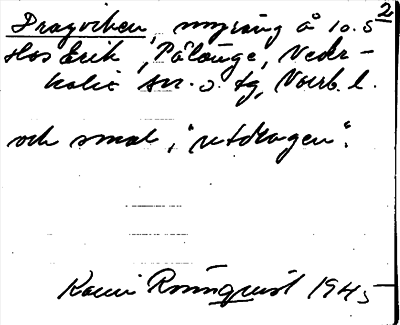 2
Dragviken, myräng å 10.5
Hos Erik, Pålänge, Neder-
kalix sn. o. tg, Norrb. l.
och smal, "utdragen".
Karin Rönnquist 1945